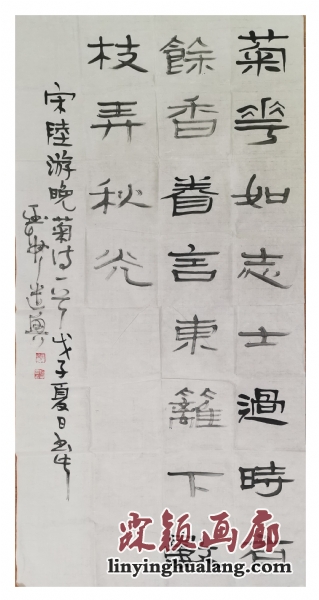 菊花如志士過時有
餘香眷言東籬下數
枝弄秋光
宋陸游晚菊诗一首戊子夏日书
霖颖画廊
linyinghualang.com